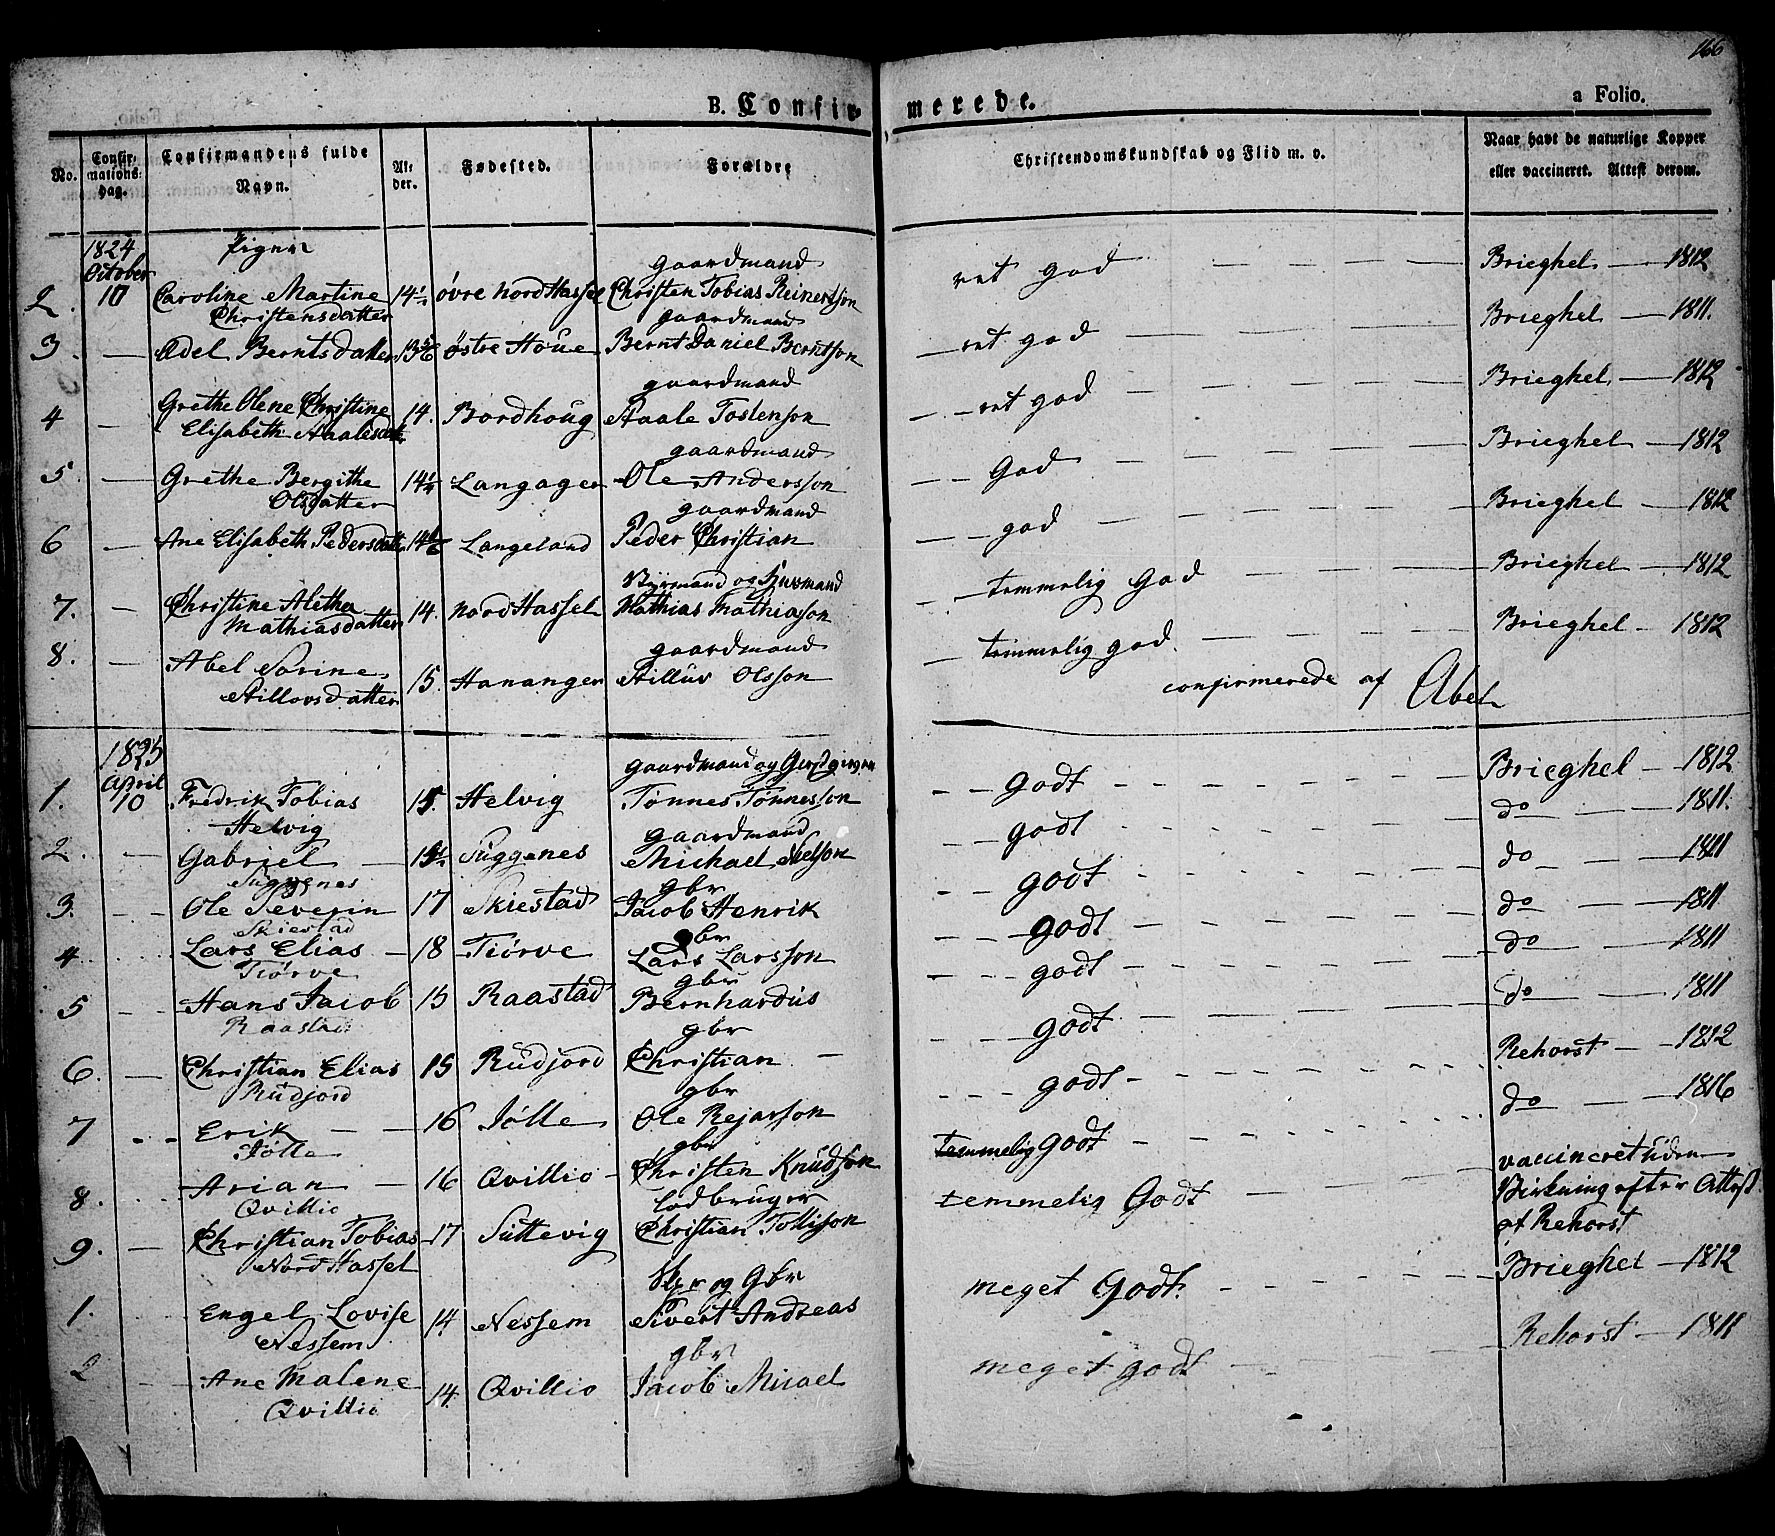 166
B. Confirmerede.
a Folio.
No.
Confirmationsdag.
Confirmandens fulde Navn.
Alder.
Fødested.
Forældre
Christendomskundskab og Flid m. v.
Naar havt de naturlige Kopper eller vaccineret. Attest derom.
1824 Piger
October gaardmand
2. 10 Caroline Martine 14½ øvre Nord Hassel Christen Tobias Reinertson ret god Brieghel 1812
Christensdatter gaardmand
3. Adel Berntsdatter østre Høue Bernt Daniel Berntson ret god Brieghel 1811.
gaardmand
4 Grethe Olene Christine 14. Bordhoug Staale Tostenson ret god Brieghel 1812
Elisabeth Staalesdatter gaardmand
5. Grethe Bergithe Langager Ole Andersson God Brieghel 1812
Olsdatter gaardmand
6 Ane Elisabeth Pedersdatter Langeland Peder Christian god Brieghel 1812
Styrmand og Huusmand
7. Christine Aletha 14. Nord Hassel Mathias Mathiasson temmelig God Brieghel 1812
Mathiasdatter gaardmand
8. Abel Sorine 15. Hananger Stilluv Olsson temmelig god. Brieghel 1812
Stillovsdatter
confirmerede af Abel
1825
April gaardmand og
1. 10 Fredrik Tobias 15. Helvig Tønnes Tønnesson godt Brieghel 1812
Helvig gaardmand
2. Gabriel Siggenes Michael Nielson godt do 1811.
Siggenes gbr
3. Ole Severin 17 Skiestad Jacob Henrik godt do 1811
Skiestad gbr
4 Lars Elias 18 Tiørve Lars Larsson godt do 1811
Tiørve gbr
5 Hans Jacob 15 Raastad Bernhardus godt do 1811
Raastad gbr
6. Christian Elias 15 Rudjord Christian godt do 1811
Rudjord gbr
7 Erik 16 Jølle Ole Rejarson godt Rehorst 1812
Jølle gbr
8. Arian 16 Qvillio Christen Knudson temmelig godt do 1816
Qvillio Lodbruger
9. Christian Tobias 17 Suttevig Christian Tollison temmelig Godt vaccineret uden
Nord Hassel Virkning efter Attest
af Rehorst
Skr og Gbr
1. Engel Lovise 14 Nessem Sivert Andreas meget Godt. Brieghel 1812
Nessem gbr
2 Ane Malene 14. Qvillio Jacob Micael meget godt Rehorst 1811
Qvillio